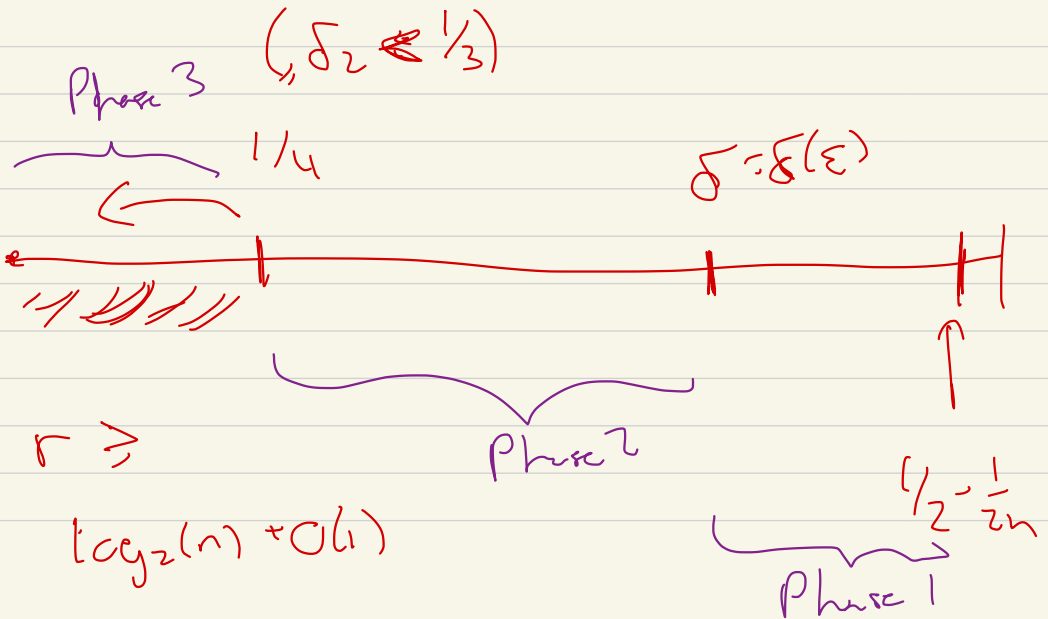 (, δ₂ < 1/3)
Phase 3
1/4
δ = δ(ε)
Phase 2
r ≥
1/2 - 1/2n
log₂(n) + O(1)
Phase 1